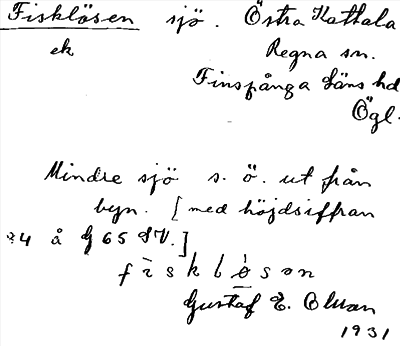 Fisklösen sjö. Östra Kattala
ek Regna sn.
Finspånga läns hd
Ögl.
Mindre sjö s. ö. ut från
byn. [med höjdsiffran
34 å G 65 SV.]
fìskløsən
Gustaf E. Olsson
1931